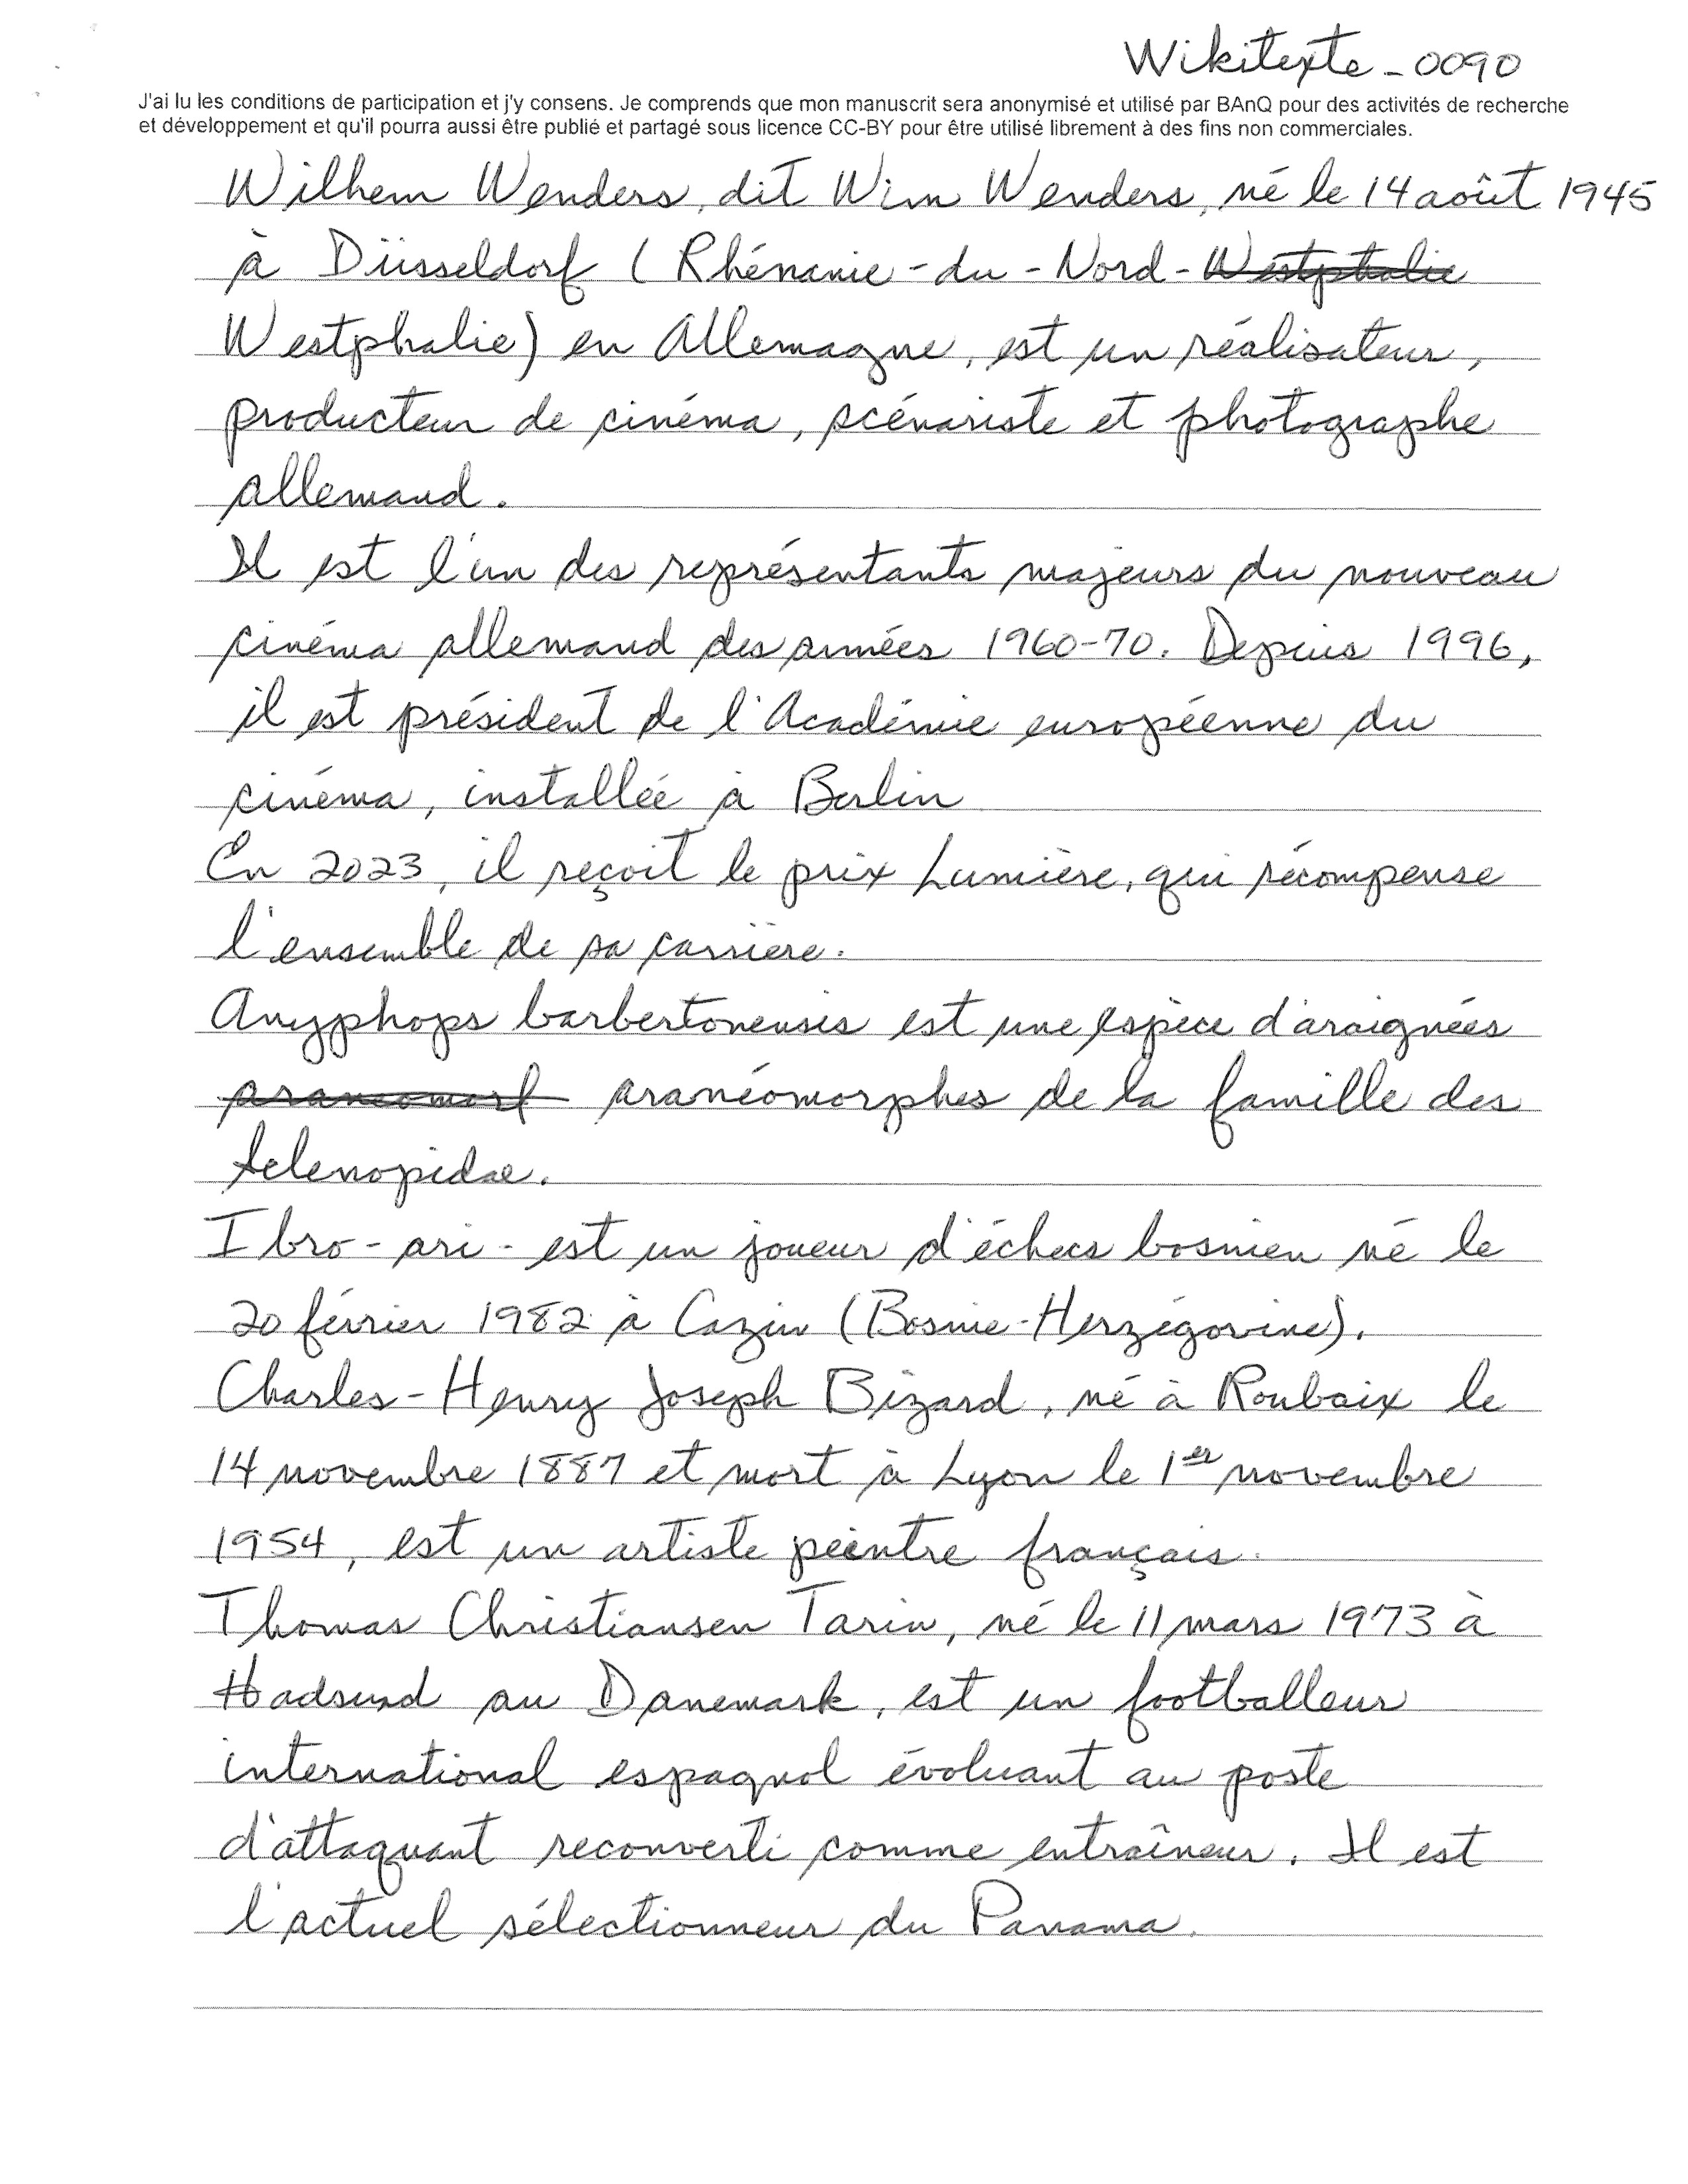 Wikitexte_0090
J'ai lu les conditions de participation et j'y consens. Je comprends que mon manuscrit sera anonymisé et utilisé par BAnQ pour des activités de recherche
et développement et qu'il pourra aussi être publié et partagé sous licence CC-BY pour être utilisé librement à des fins non commerciales.
Wilhem Wenders, dit Wim Wenders, né le 14 août 1945
à Düsseldorf (Rhénanie-du-Nord-Westphalie
Westphalie) en Allemagne, est un réalisateur,
producteur de cinéma, scénariste et photographe
allemand.
Il est l'un des représentants majeurs du nouveau
cinéma allemand des années 1960-70. Depuis 1996,
il est président de l'Académie européenne du
cinéma, installée à Berlin
En 2023, il reçoit le prix Lumière, qui récompense
l'ensemble de sa carrière.
Anyphops barbertonensis est une espèce d'araignées
araneomorf aranéomorphes de la famille des
selenopidae.
Ibro-ari- est un joueur d'échecs bosnien né le
20 février 1982 à Cazin (Bosnie-Herzégovine).
Charles-Henry Joseph Bizard, né à Roubaix le
14 novembre 1887 et mort à Lyon le 1er novembre
1954, est un artiste peintre français.
Thomas Christiansen Tarin, né le 11 mars 1973 à
Hadsund au Danemark, est un footballeur
international espagnol évoluant au poste
d'attaquant reconverti comme entraîneur. Il est
l'actuel sélectionneur du Panama.